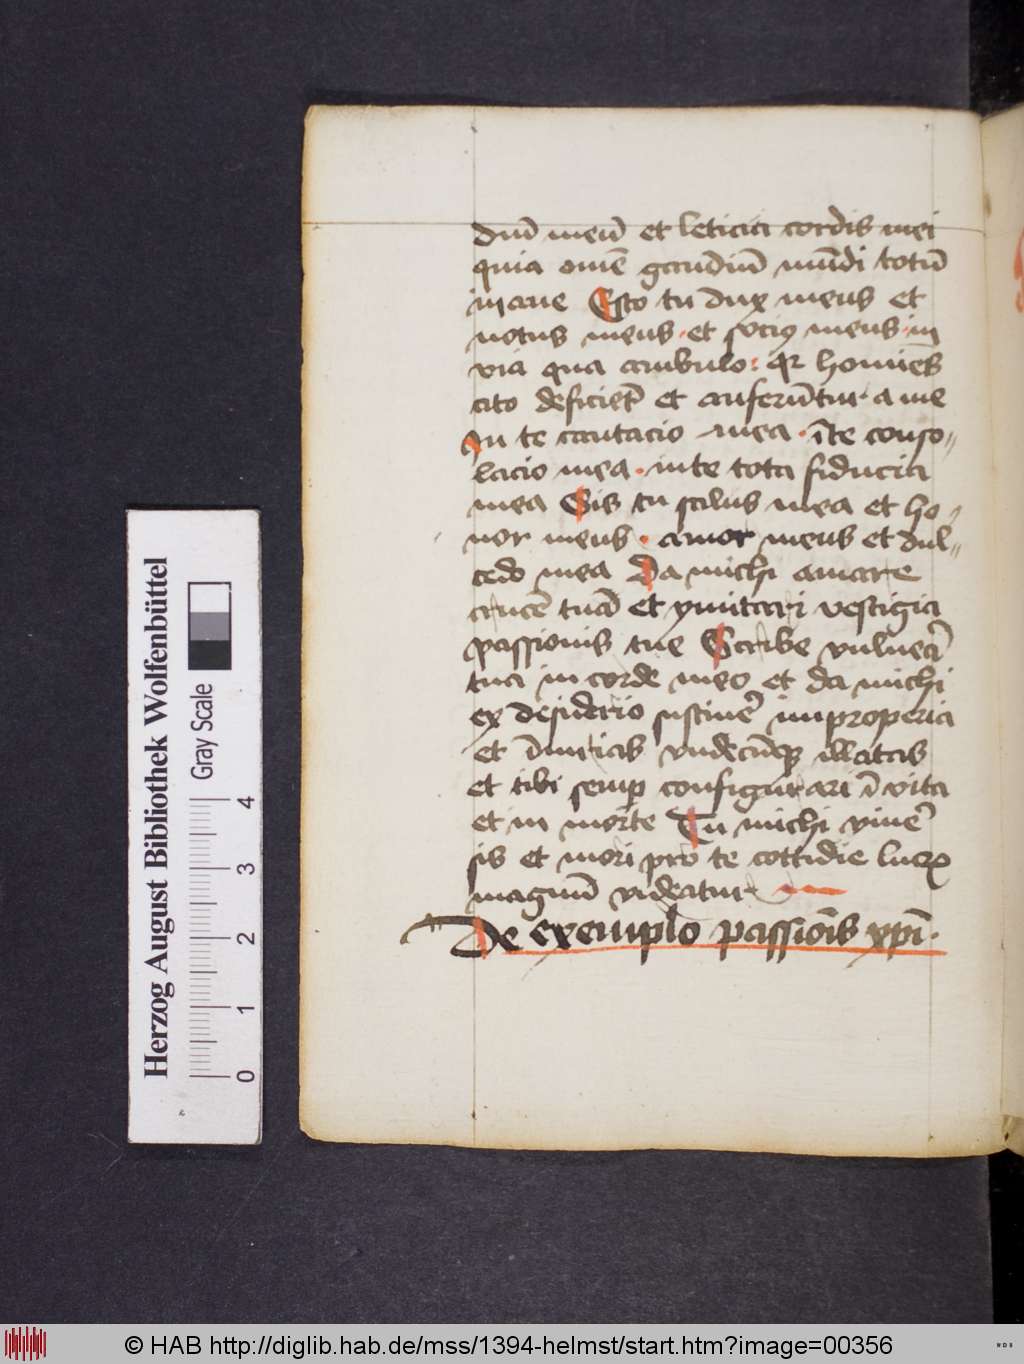 diu̅ meu̅ et leticia cordis mei
quia ome̅ gaudiu̅ mu̅di totu̅
inane Esto tu dux meus et
notus meus · et sociꝰ meus · in
via qua ambulo : qꝛ homi̅es
cito deficie̅t et auferu̅tur a me
In te cantacio mea · i̅te conso〃
lacio mea · inte tota fiducia
mea Sis tu salus mea et ho〃
nor meus · amor meus et dul〃
cedo mea Da michi amare
cruce̅ tua̅ et ymitari vestigia
passionis tue Scribe vulnera̅
tua in corde meo et da michi
ex desiderio sustine̅ improperia
et i̅iurias vndecu̅qꝫ illatas
et tibi semꝑ configurari i̅ vita
et in morte Tu michi viue̅
sis et mori pro te cottidie lucꝝ
magnu̅ videatur
De exemplo passio̅is xpi̅ ·
Herzog August Bibliothek Wolfenbüttel
Gray Scale
0 1 2 3 4
© HAB http://diglib.hab.de/mss/1394-helmst/start.htm?image=00356